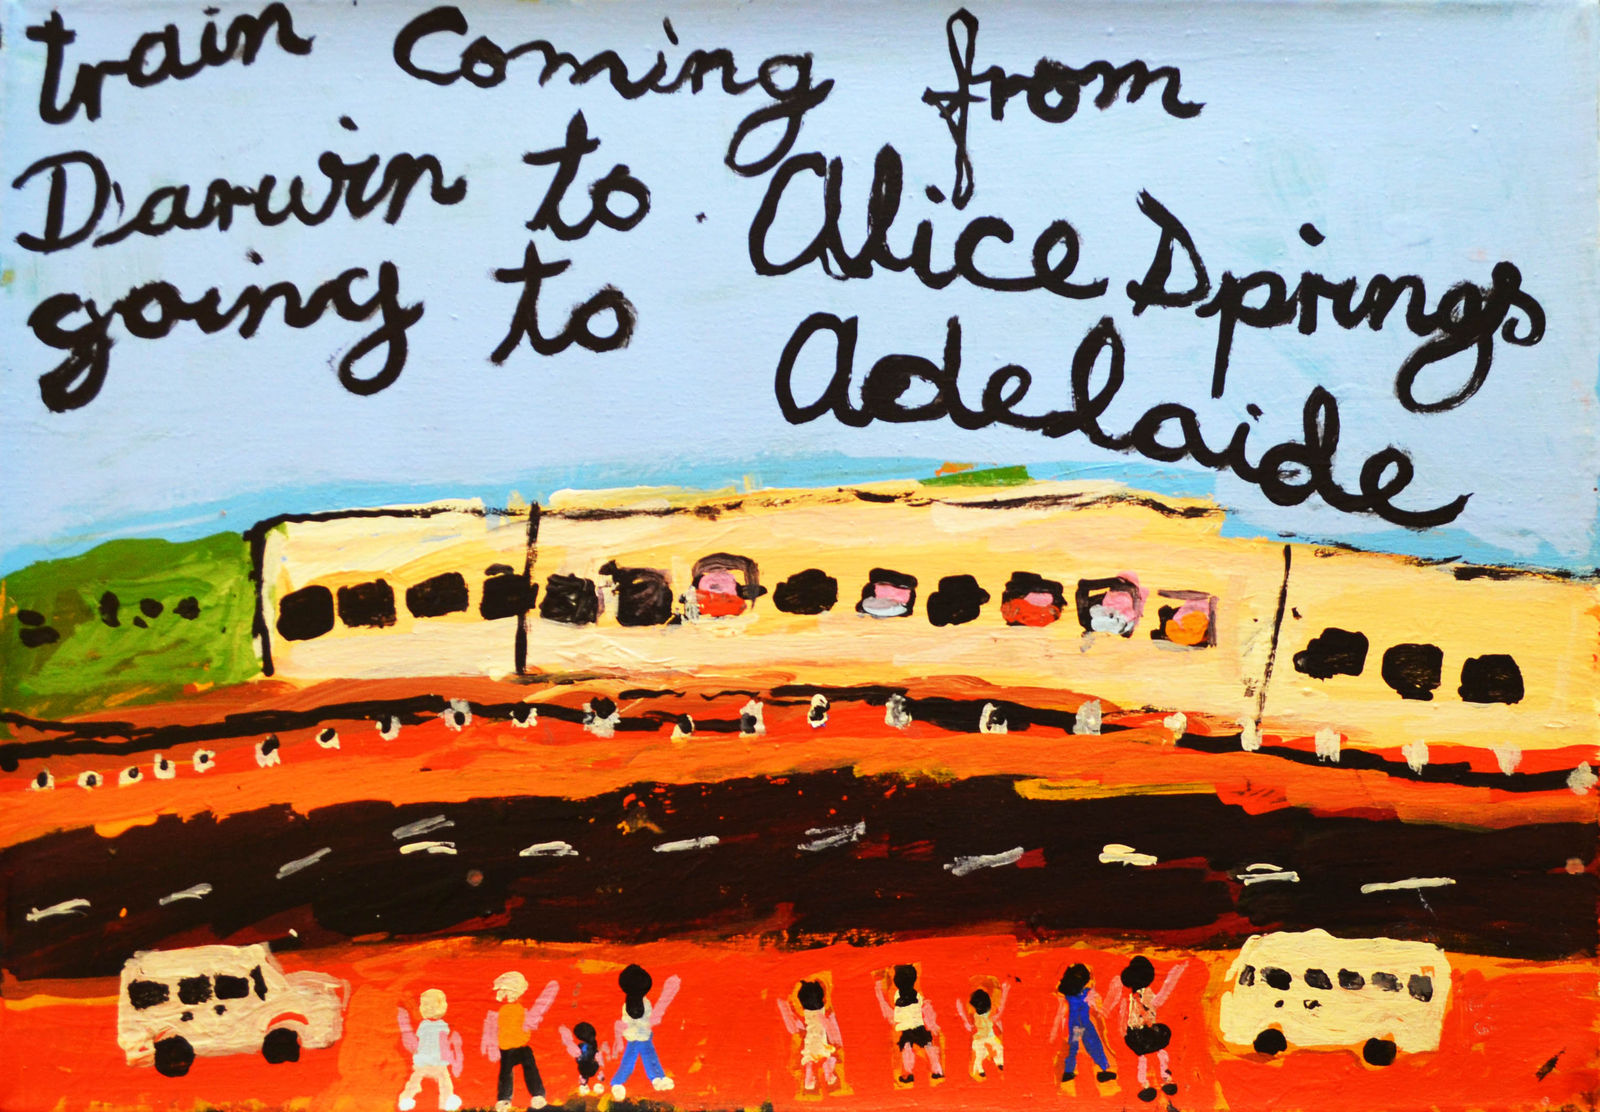 train Coming from
Darwin to Alice Springs
going to Adelaide